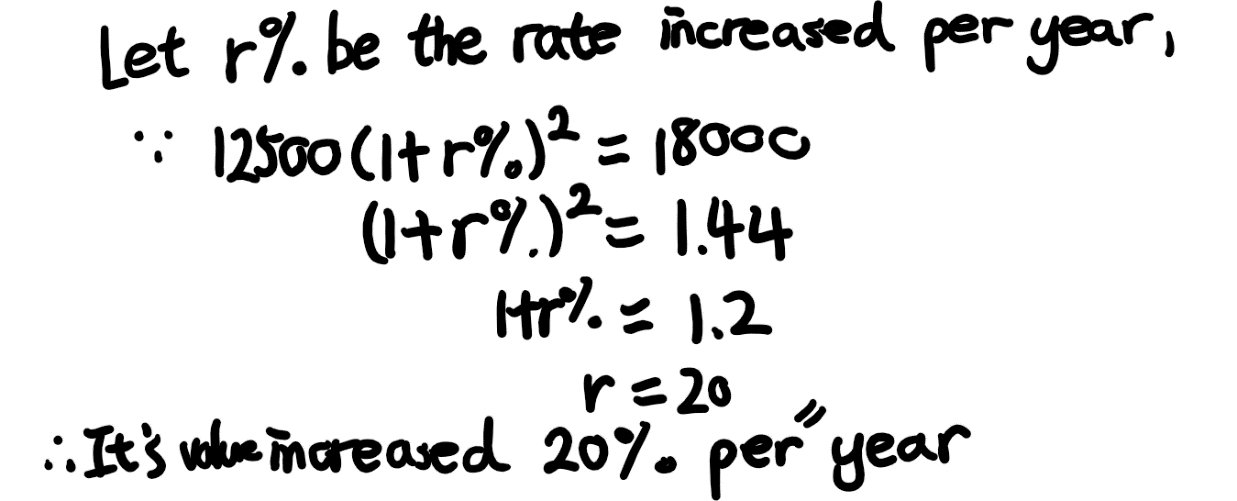 Let r% be the rate increased per year,
∵ 12500(1+r%)² = 18000
(1+r%)² = 1.44
1+r% = 1.2
r = 20
∴ It's value increased 20% per year